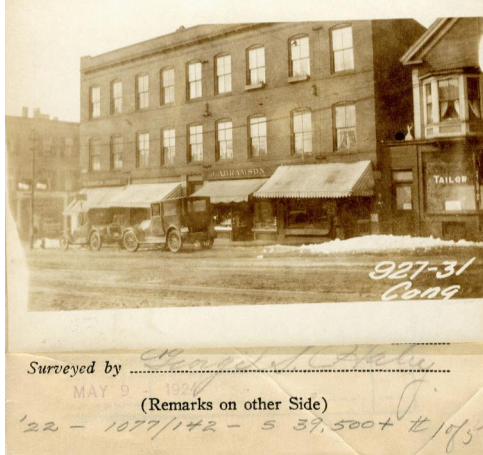 J. ABRAMSON
TAILOR
927-31
Cong
Surveyed by George S. Haley
MAY 9 - 1924
(Remarks on other Side)
'22 - 1077/142 - S 39,500+ # 1 of 5